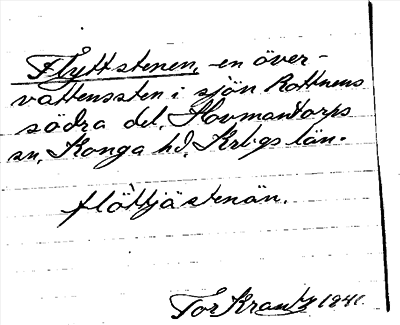 Flyttstenen, en över-
vattenssten i sjön Rottnens
södra del, Hovmantorps
sn, Konga hd, Krbgs län.
flöttjästenän.
Tor Krantz 1941